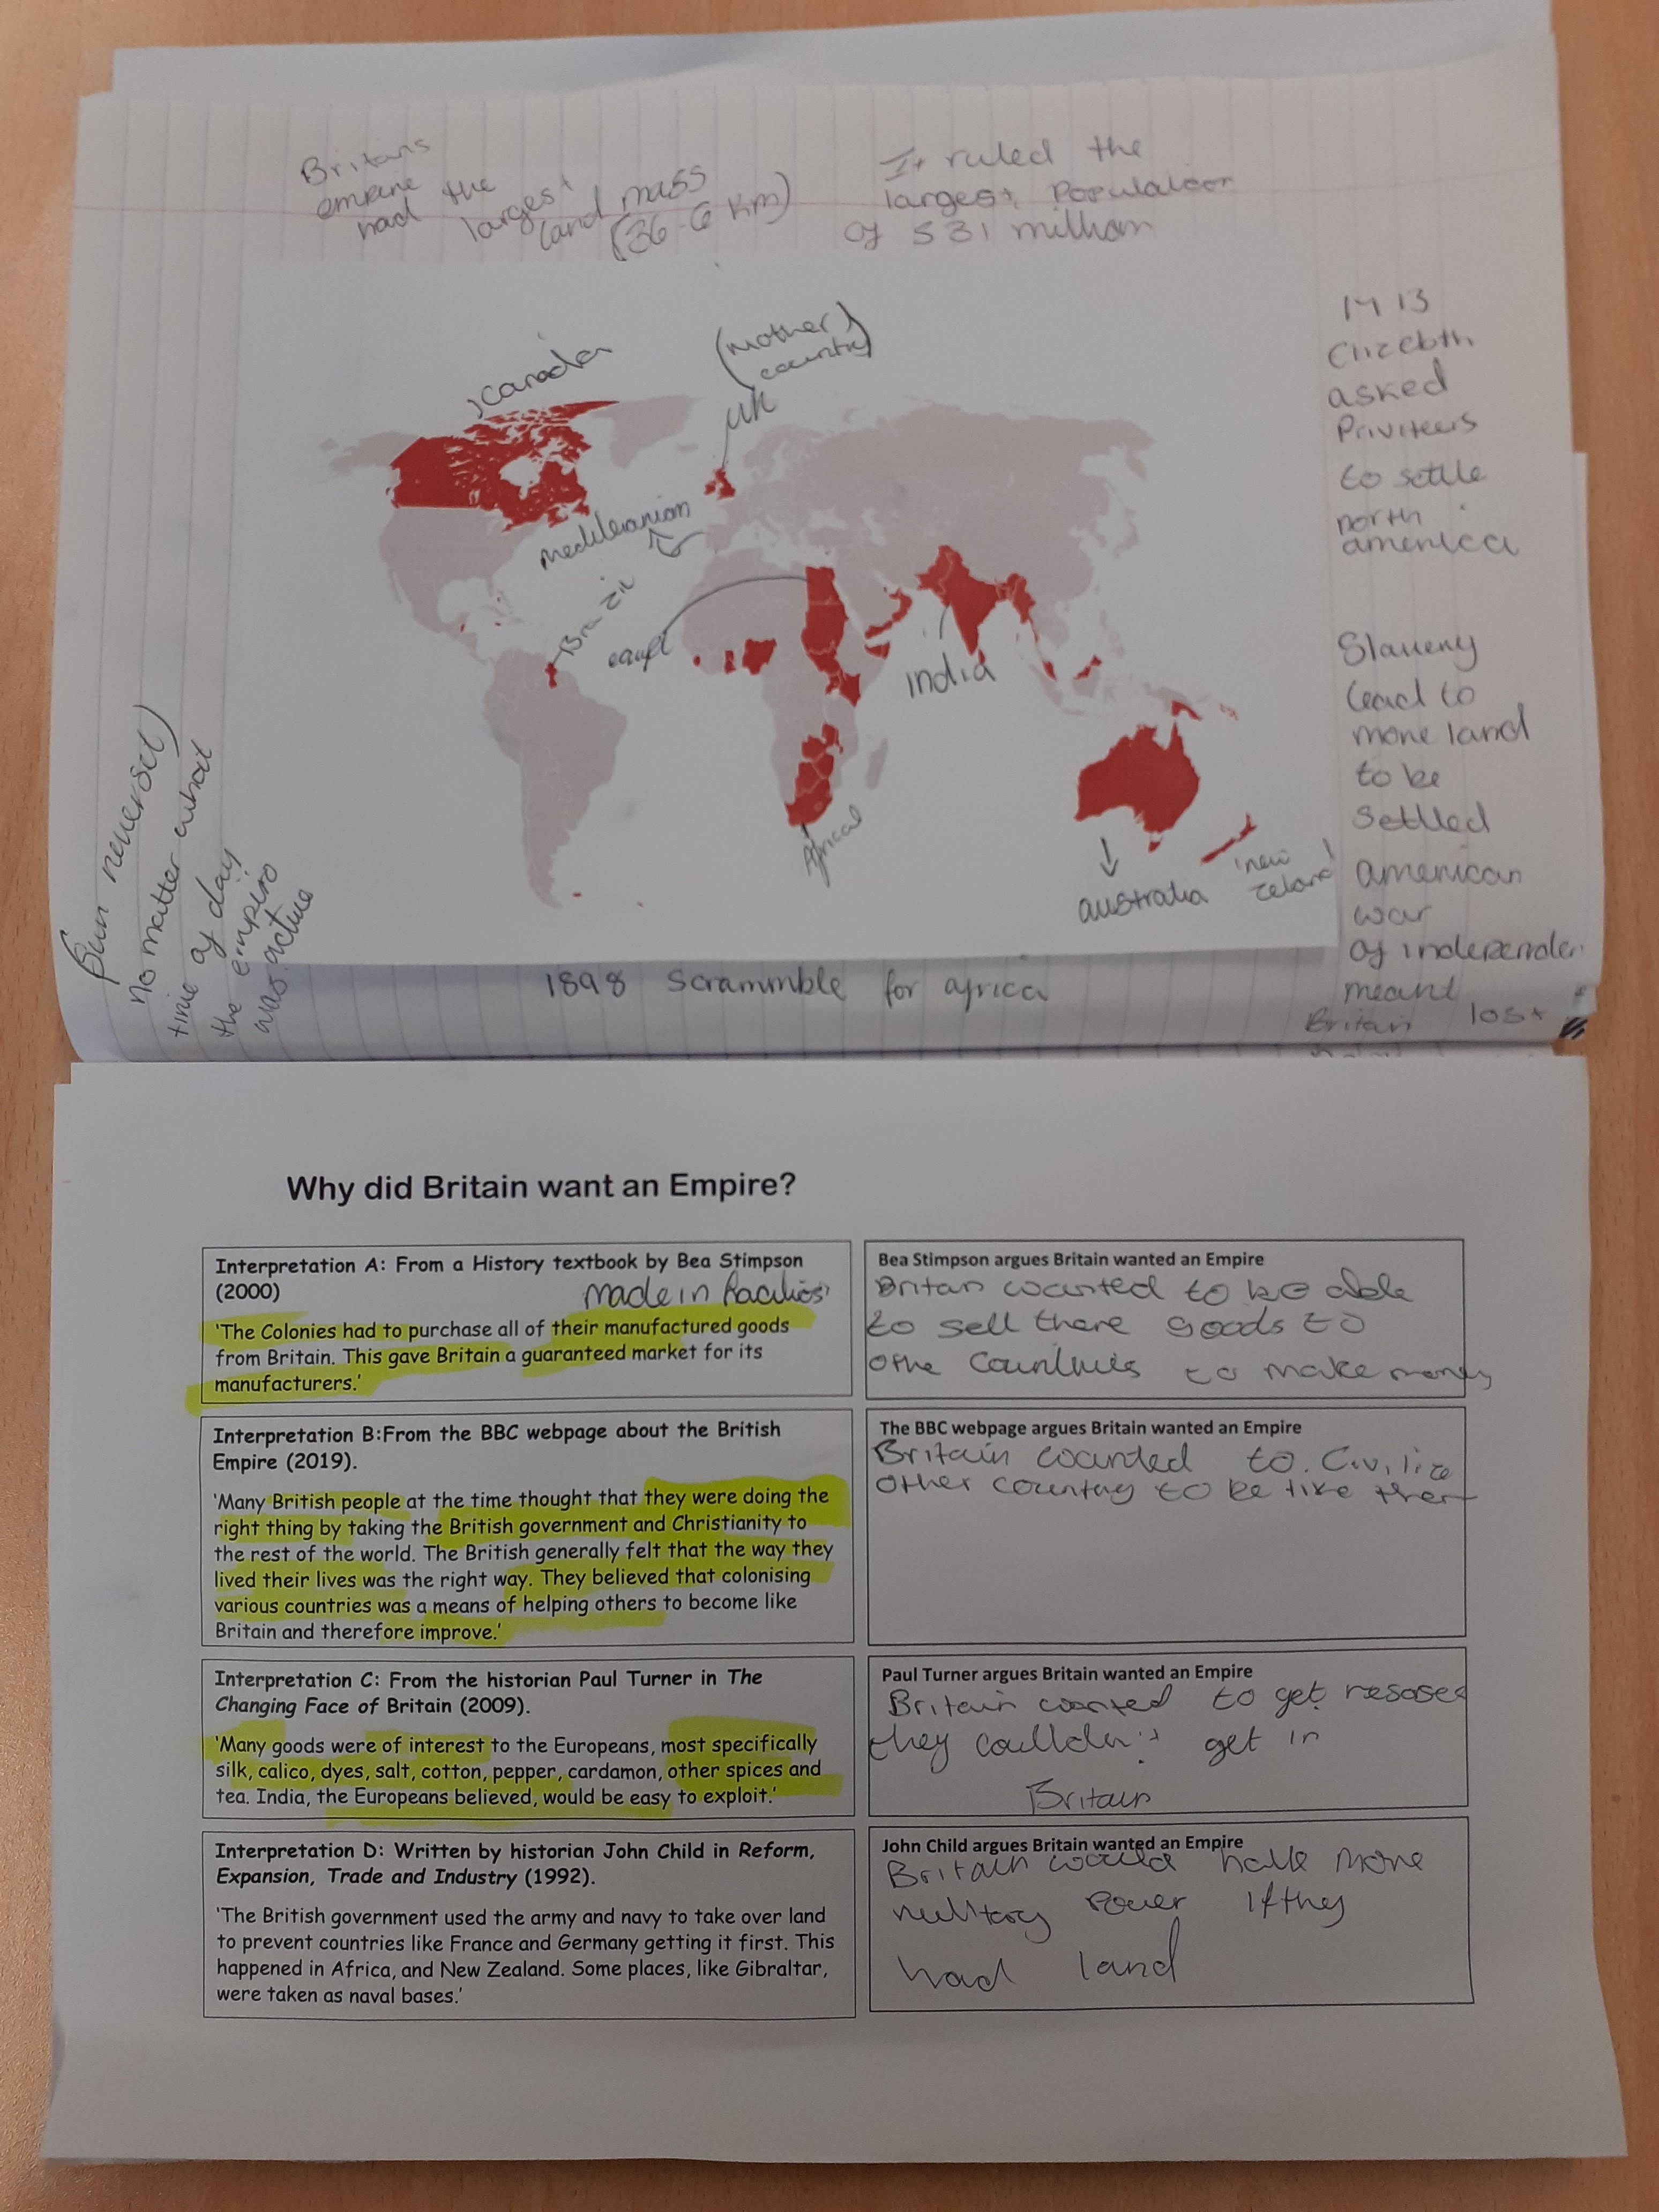 Britans
empire
had the
largest
land mass
(36.6 km)
It ruled the
largest Population
of 531 million
Canada
(Mother
country)
UK
mediteranian
Brazil
egypt
india
Africa
australia
new
zeland
Sun never set)
no matter what
time of day
the empire
was active
1898 Scrammble for africa
Elizebth
asked
Priviteers
to settle
north
america
Slavery
lead to
more land
to be
settled
american
war
of independen
meant
Britain lost
Why did Britain want an Empire?
Interpretation A: From a History textbook by Bea Stimpson
(2000)
made in
'The Colonies had to purchase all of their manufactured goods
from Britain. This gave Britain a guaranteed market for its
manufacturers.'
Bea Stimpson argues Britain wanted an Empire
Britan wanted to be able
to sell there goods to
othe Countries to make money
Interpretation B:From the BBC webpage about the British
Empire (2019).
'Many British people at the time thought that they were doing the
right thing by taking the British government and Christianity to
the rest of the world. The British generally felt that the way they
lived their lives was the right way. They believed that colonising
various countries was a means of helping others to become like
Britain and therefore improve.'
The BBC webpage argues Britain wanted an Empire
Britain wanted to Civilize
other country to be like them
Interpretation C: From the historian Paul Turner in The
Changing Face of Britain (2009).
'Many goods were of interest to the Europeans, most specifically
silk, calico, dyes, salt, cotton, pepper, cardamon, other spices and
tea. India, the Europeans believed, would be easy to exploit.'
Paul Turner argues Britain wanted an Empire
Britain wanted to get resoses
they coulldn't get in
Britain
Interpretation D: Written by historian John Child in Reform,
Expansion, Trade and Industry (1992).
'The British government used the army and navy to take over land
to prevent countries like France and Germany getting it first. This
happened in Africa, and New Zealand. Some places, like Gibraltar,
were taken as naval bases.'
John Child argues Britain wanted an Empire
Britain would have more
power if they
had land